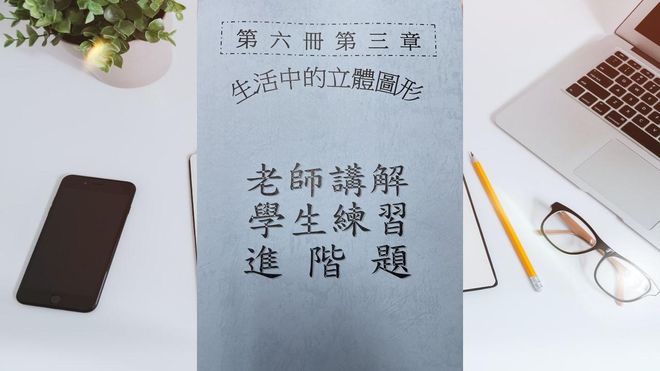 第六冊第三章
生活中的立體圖形
老師講解
學生練習
進階題